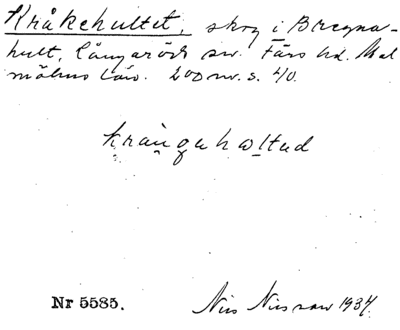 Kråkehultet, skog i Bregna-
hult, Långaröds sn. Färs hd. Mal
möhus län. 200 nv. s. 40.
krån̤gahọltad
Nr 5585.
Nils Nilsson 1934.